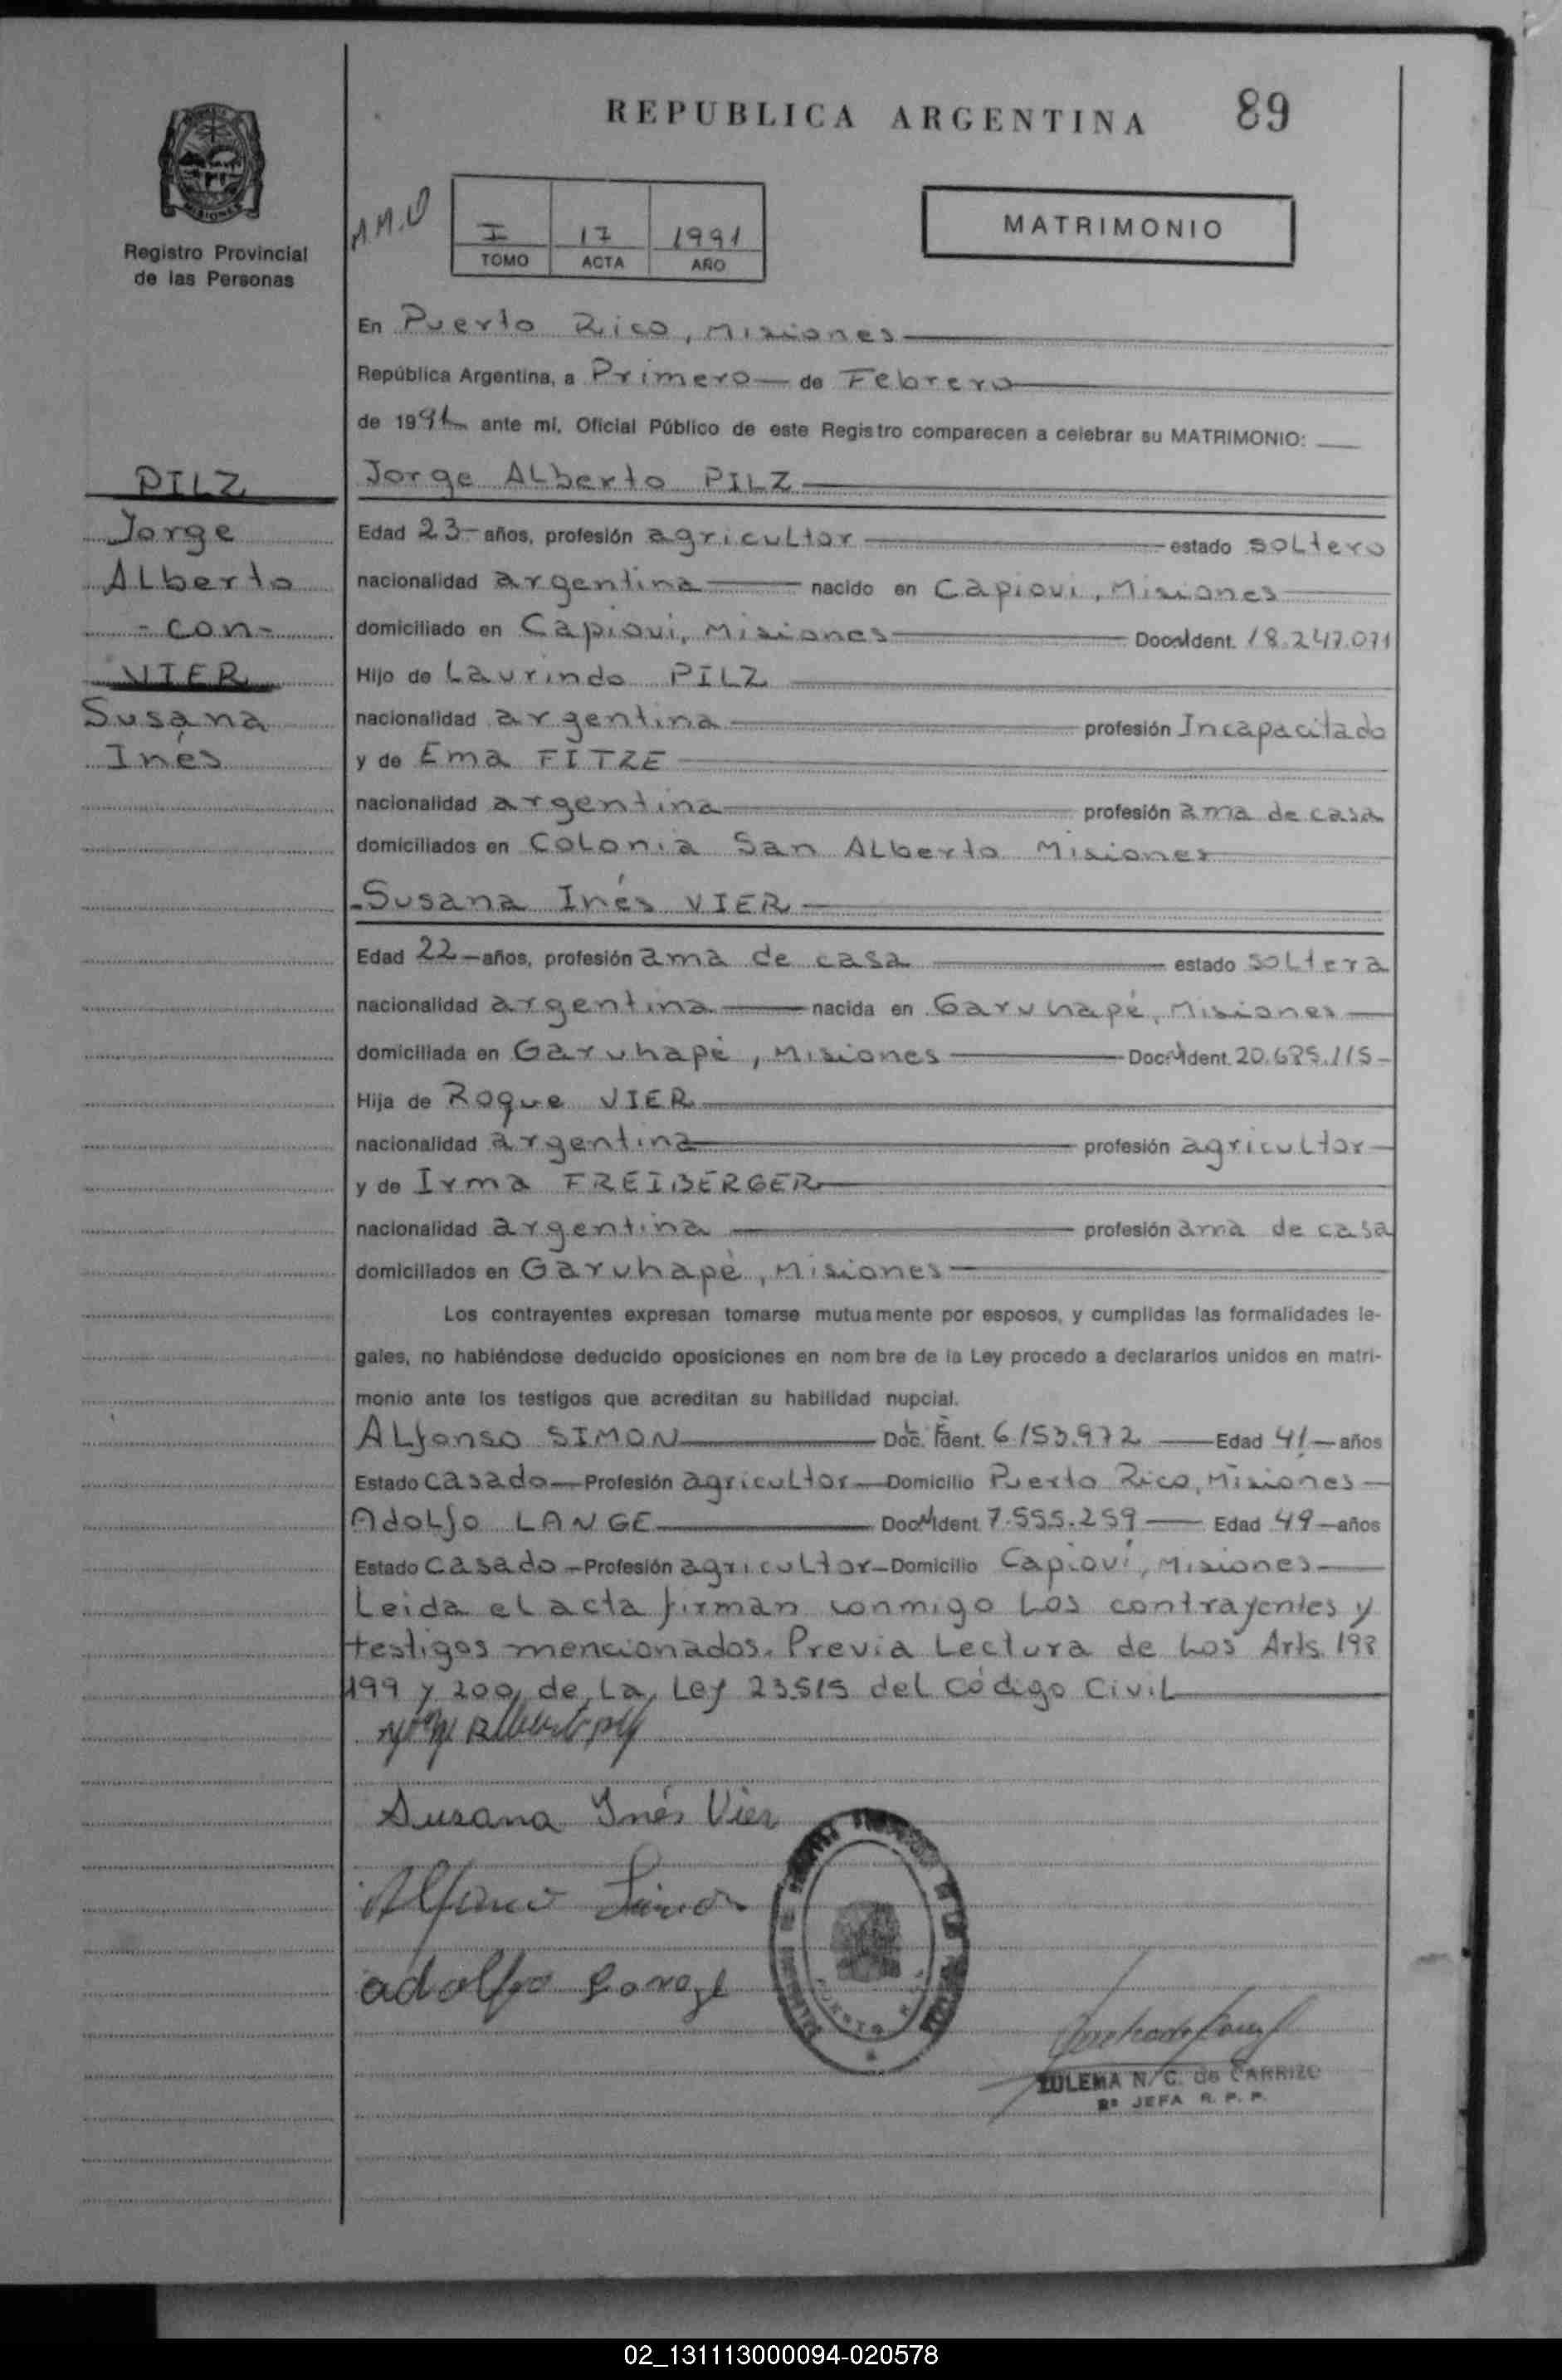 REPUBLICA ARGENTINA 89
Registro Provincial
de las Personas
A.M.U
I 17 1991
TOMO ACTA AÑO
MATRIMONIO
En Puerto Rico, Misiones
República Argentina, a Primero de Febrero
de 1991 ante mí, Oficial Público de este Registro comparecen a celebrar su MATRIMONIO:
PILZ
Jorge
Alberto
- con -
VIER
Susana
Inés
Jorge Alberto PILZ
Edad 23 años, profesión agricultor estado soltero
nacionalidad argentina nacido en Capioví, Misiones
domiciliado en Capioví, Misiones Doc. Ident. 18.247.071
Hijo de Laurindo PILZ
nacionalidad argentina profesión Incapacitado
y de Ema FITZE
nacionalidad argentina profesión ama de casa
domiciliados en Colonia San Alberto Misiones
Susana Inés VIER
Edad 22 años, profesión ama de casa estado soltera
nacionalidad argentina nacida en Garuhapé, Misiones
domiciliada en Garuhapé, Misiones Doc. Ident. 20.685.115
Hija de Roque VIER
nacionalidad argentina profesión agricultor
y de Irma FREIBERGER
nacionalidad argentina profesión ama de casa
domiciliados en Garuhapé, Misiones
Los contrayentes expresan tomarse mutuamente por esposos, y cumplidas las formalidades le-
gales, no habiéndose deducido oposiciones en nombre de la Ley procedo a declararlos unidos en matri-
monio ante los testigos que acreditan su habilidad nupcial.
Alfonso SIMON Doc. Ident. 6153.972 Edad 41 años
Estado casado Profesión agricultor Domicilio Puerto Rico, Misiones
Adolfo LANGE Doc. Ident. 7.555.259 Edad 49 años
Estado casado Profesión agricultor Domicilio Capioví, Misiones
Leida el acta firman conmigo los contrayentes y
testigos mencionados. Previa Lectura de los Arts. 198
199 y 200, de la, Ley 23515 del Código Civil
Susana Inés Vier
Alfonso Simon
adolfo Lange
ZULEMA N. C. de CARRIZO
2ª JEFA R. P. P.
02_131113000094-020578